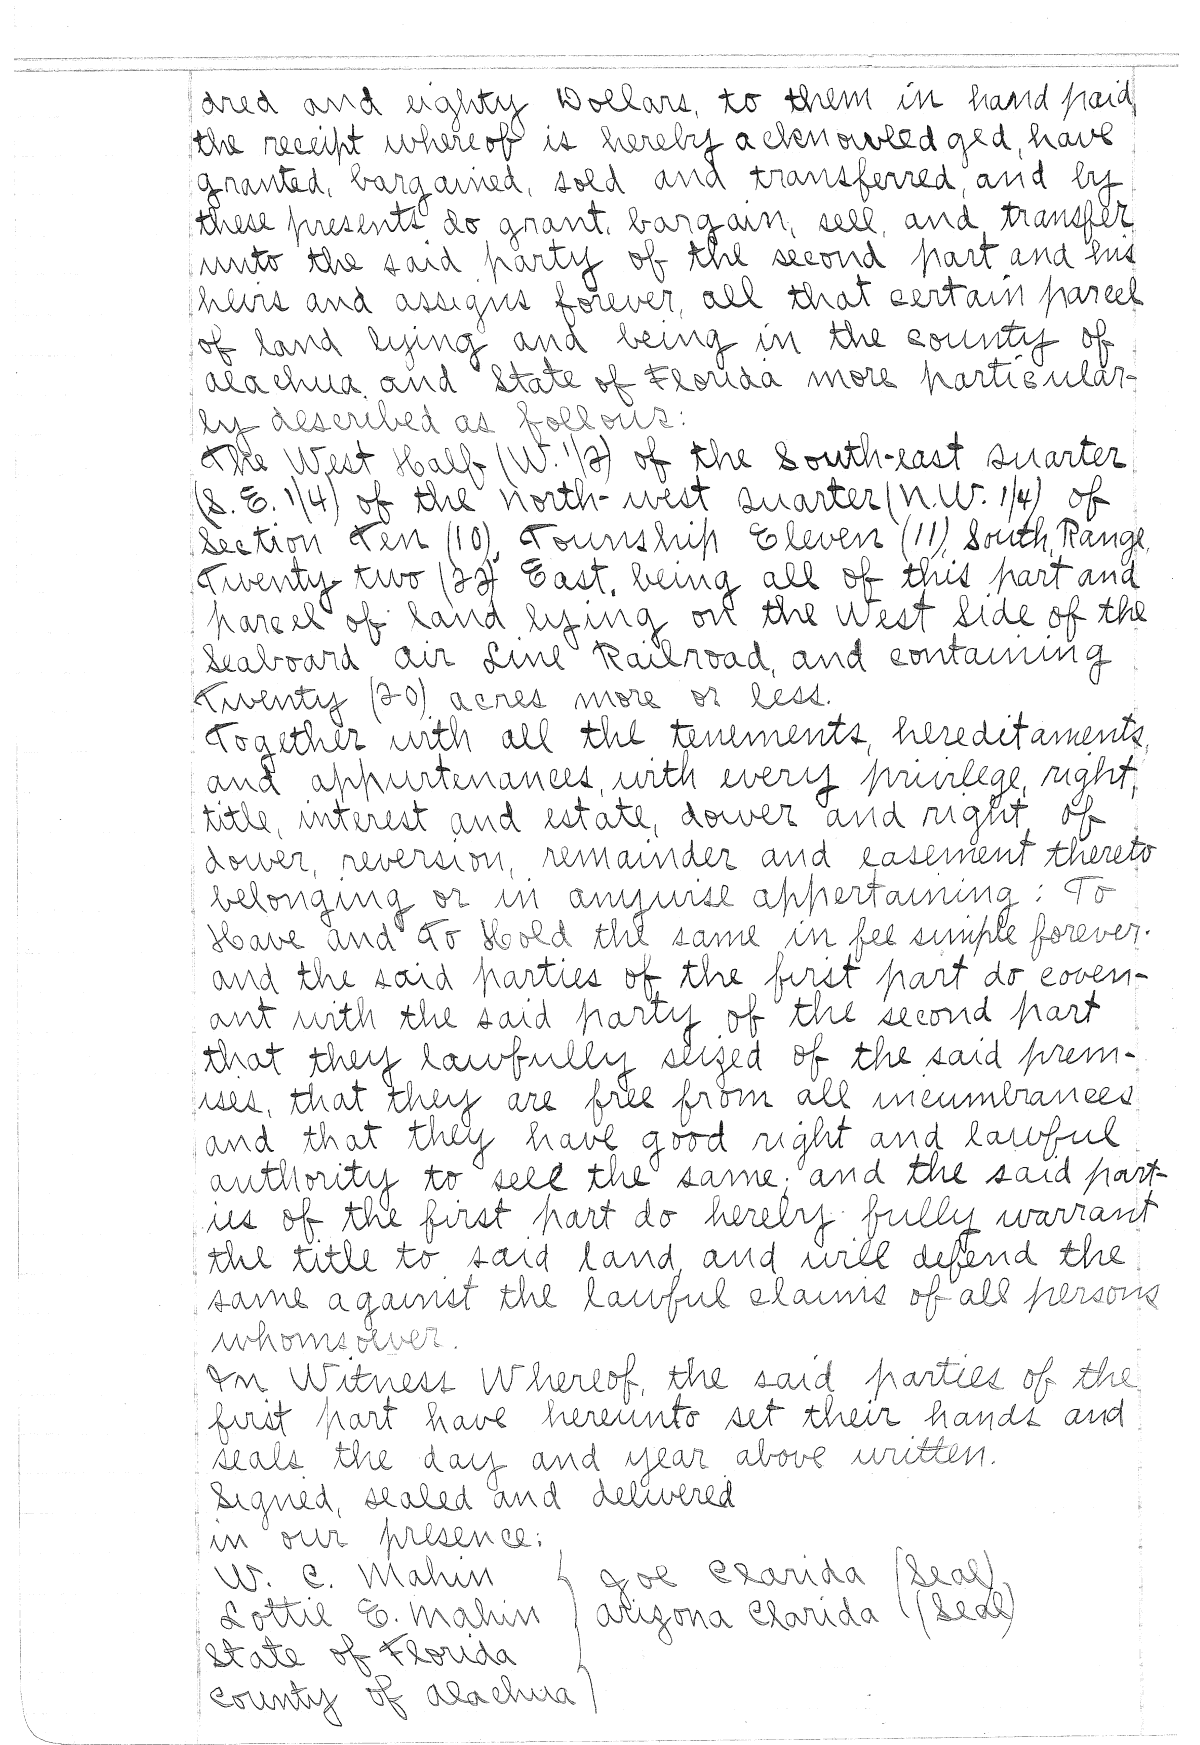 dred and eighty Dollars, to them in hand paid,
the receipt whereof is hereby acknowledged, have
granted, bargained, sold and transferred, and by
these presents do grant, bargain, sell, and transfer
unto the said party of the second part and his
heirs and assigns forever, all that certain parcel
of land lying and being in the county of
Alachua, and State of Florida more particular-
ly described as follows:
The West Half (W. 1/2) of the South-east quarter
(S. E. 1/4) of the north-west quarter (N.W. 1/4) of
Section Ten (10), Township Eleven (11), South, Range,
Twenty-two (22) East, being all of this part and
parcel of land lying on the West Side of the
Seaboard Air Line Railroad, and containing
Twenty (20) acres more or less.
Together with all the tenements, hereditaments,
and appurtenances, with every privilege, right,
title, interest and estate, dower and right of
dower, reversion, remainder and easement thereto
belonging or in anywise appertaining: To
Have and To Hold the same in fee simple forever.
and the said parties of the first part do coven-
ant with the said party of the second part
that they lawfully seized of the said prem-
ises, that they are free from all incumbrances
and that they have good right and lawful
authority to sell the same; and the said part-
ies of the first part do hereby fully warrant
the title to said land, and will defend the
same against the lawful claims of all persons
whomsoever.
In Witness Whereof, the said parties of the
first part have hereunto set their hands and
seals the day and year above written.
Signed, sealed and delivered
in our presence:
W. C. Mahin } Joe Clarida (Seal)
Lottie E. Mahin } Arizona Clarida (Seal)
State of Florida
County of Alachua }